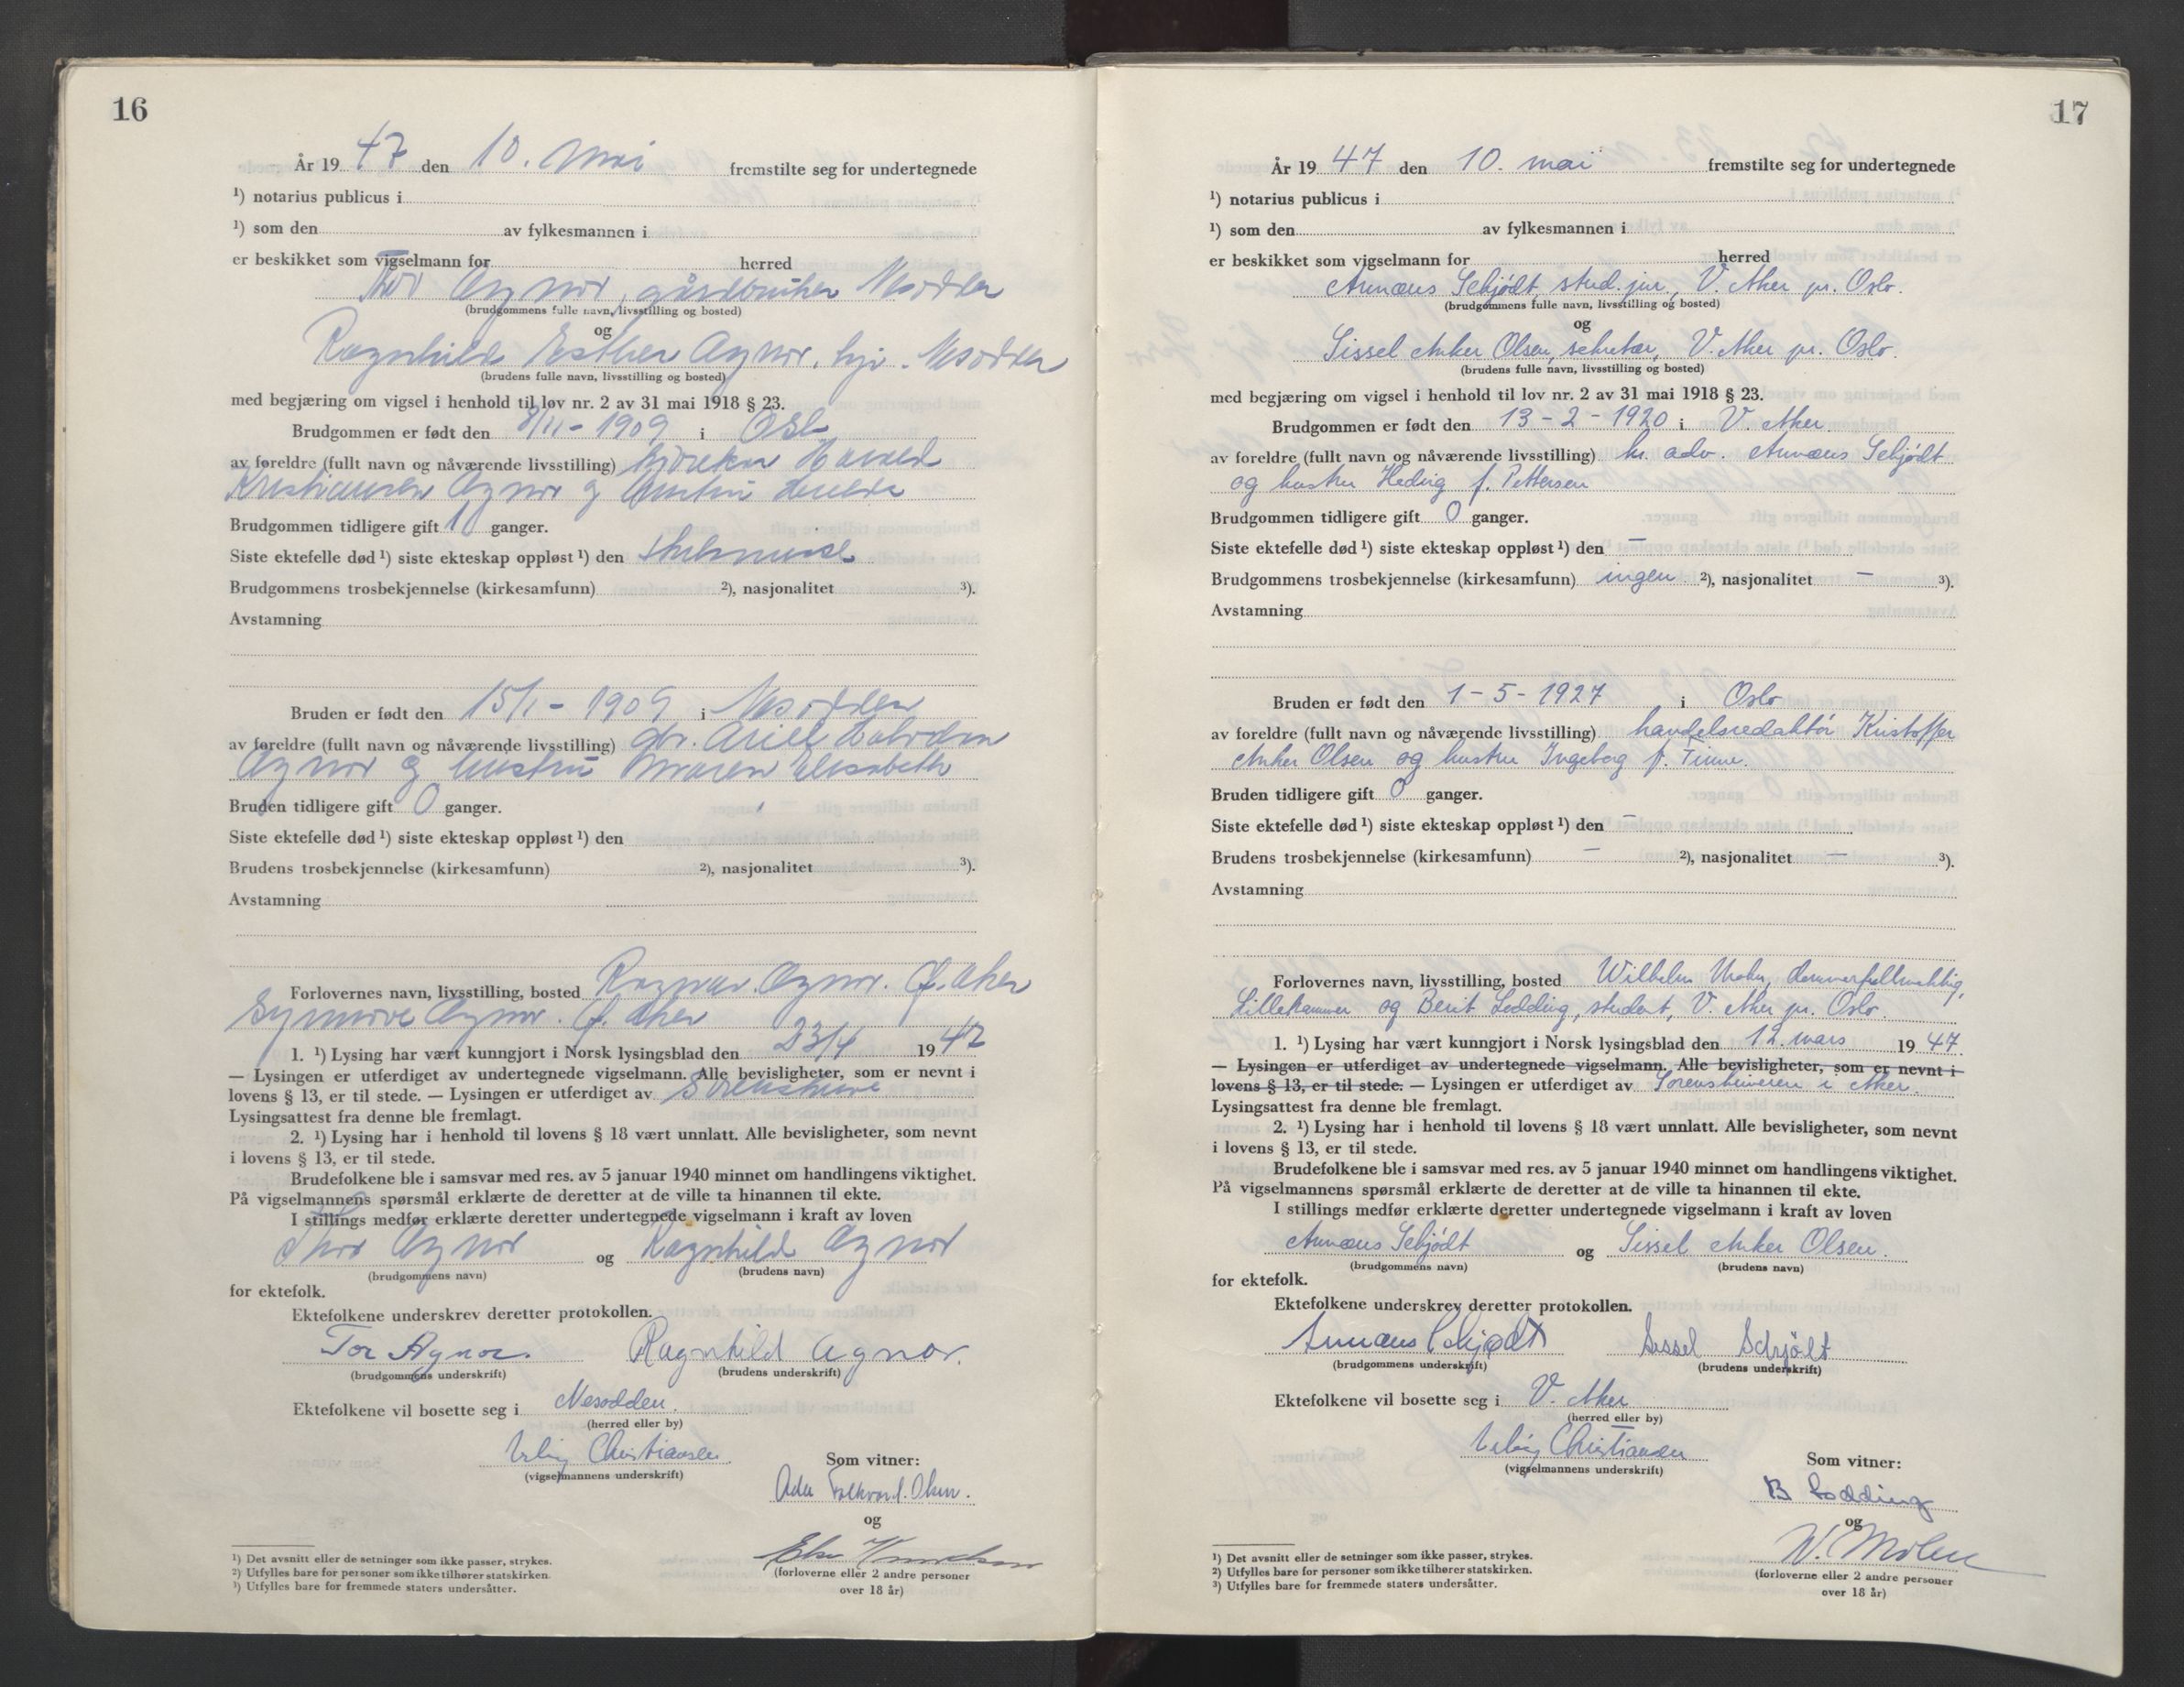 16
År 19 47 den 10. mai fremstilte seg for undertegnede
¹) notarius publicus i
¹) som den av fylkesmannen i
er beskikket som vigselmann for herred
Thor Agnor, gårdbruker Nesodden
(brudgommens fulle navn, livsstilling og bosted)
og
Ragnhild Esther Agnor. hjv. Nesodden
(brudens fulle navn, livsstilling og bosted)
med begjæring om vigsel i henhold til lov nr. 2 av 31 mai 1918 § 23.
Brudgommen er født den 8/11 - 1909 i Oslo
av foreldre (fullt navn og nåværende livsstilling) Harald
Kristiansen Agnor og hustru
Brudgommen tidligere gift ganger.
Siste ektefelle død¹) siste ekteskap oppløst¹) den
Brudgommens trosbekjennelse (kirkesamfunn) ²), nasjonalitet ³).
Avstamning
Bruden er født den 15/1 - 1909 i Nesodden
av foreldre (fullt navn og nåværende livsstilling) gbr.
Agnor og hustru Maren Elisabeth
Bruden tidligere gift 0 ganger.
Siste ektefelle død¹) siste ekteskap oppløst¹) den
Brudens trosbekjennelse (kirkesamfunn) ²), nasjonalitet ³).
Avstamning
Forlovernes navn, livsstilling, bosted Ragnar Agnor. Ø. Aker
Synnøve Agnor. Ø. Aker
1. ¹) Lysing har vært kunngjort i Norsk lysingsblad den 23/4 19 47
— Lysingen er utferdiget av undertegnede vigselmann. Alle bevisligheter, som er nevnt i
lovens § 13, er til stede. — Lysingen er utferdiget av
Lysingsattest fra denne ble fremlagt.
2. ¹) Lysing har i henhold til lovens § 18 vært unnlatt. Alle bevisligheter, som nevnt
i lovens § 13, er til stede.
Brudefolkene ble i samsvar med res. av 5 januar 1940 minnet om handlingens viktighet.
På vigselmannens spørsmål erklærte de deretter at de ville ta hinannen til ekte.
I stillings medfør erklærte deretter undertegnede vigselmann i kraft av loven
Thor Agnor og Ragnhild Agnor
(brudgommens navn) (brudens navn)
for ektefolk.
Ektefolkene underskrev deretter protokollen.
Tor Agnor. Ragnhild Agnor.
(brudgommens underskrift) (brudens underskrift)
Ektefolkene vil bosette seg i Nesodden.
(herred eller by)
Erling Christiansen
(vigselmannens underskrift)
Som vitner:
Olsen.
og
Else Knudsen
(forloverne eller 2 andre personer
over 18 år)
¹) Det avsnitt eller de setninger som ikke passer, strykes.
²) Utfylles bare for personer som ikke tilhører statskirken.
³) Utfylles bare for fremmede staters undersåtter.
17
År 19 47 den 10. mai fremstilte seg for undertegnede
¹) notarius publicus i
¹) som den av fylkesmannen i
er beskikket som vigselmann for herred
Annæus Schjødt, stud. jur., V. Aker pr. Oslo.
(brudgommens fulle navn, livsstilling og bosted)
og
Sissel Anker Olsen, sekretær, V. Aker pr. Oslo.
(brudens fulle navn, livsstilling og bosted)
med begjæring om vigsel i henhold til lov nr. 2 av 31 mai 1918 § 23.
Brudgommen er født den 13 - 2 - 1920 i V. Aker.
av foreldre (fullt navn og nåværende livsstilling) h. adv. Annæus Schjødt
og hustru Hedvig f. Pettersen
Brudgommen tidligere gift 0 ganger.
Siste ektefelle død¹) siste ekteskap oppløst¹) den —
Brudgommens trosbekjennelse (kirkesamfunn) ingen ²), nasjonalitet — ³).
Avstamning
Bruden er født den 1 - 5 - 1927 i Oslo
av foreldre (fullt navn og nåværende livsstilling) handelsredaktør Kristoffer
Anker Olsen og hustru Ingeborg f.
Bruden tidligere gift 0 ganger.
Siste ektefelle død¹) siste ekteskap oppløst¹) den —
Brudens trosbekjennelse (kirkesamfunn) — ²), nasjonalitet — ³).
Avstamning
Forlovernes navn, livsstilling, bosted Wilhelm dommerfullmektig,
Lillehammer og Berit Lødding, student, V. Aker pr. Oslo.
1. ¹) Lysing har vært kunngjort i Norsk lysingsblad den 12. mars 19 47.
— Lysingen er utferdiget av undertegnede vigselmann. Alle bevisligheter, som er nevnt i
lovens § 13, er til stede. — Lysingen er utferdiget av Sorenskriveren i Aker.
Lysingsattest fra denne ble fremlagt.
2. ¹) Lysing har i henhold til lovens § 18 vært unnlatt. Alle bevisligheter, som nevnt
i lovens § 13, er til stede.
Brudefolkene ble i samsvar med res. av 5 januar 1940 minnet om handlingens viktighet.
På vigselmannens spørsmål erklærte de deretter at de ville ta hinannen til ekte.
I stillings medfør erklærte deretter undertegnede vigselmann i kraft av loven
Annæus Schjødt og Sissel Anker Olsen.
(brudgommens navn) (brudens navn)
for ektefolk.
Ektefolkene underskrev deretter protokollen.
Annæus Schjødt Sissel Schjødt
(brudgommens underskrift) (brudens underskrift)
Ektefolkene vil bosette seg i V. Aker
(herred eller by)
Erling Christiansen
(vigselmannens underskrift)
Som vitner:
B Lødding
og
W.
(forloverne eller 2 andre personer
over 18 år)
¹) Det avsnitt eller de setninger som ikke passer, strykes.
²) Utfylles bare for personer som ikke tilhører statskirken.
³) Utfylles bare for fremmede staters undersåtter.